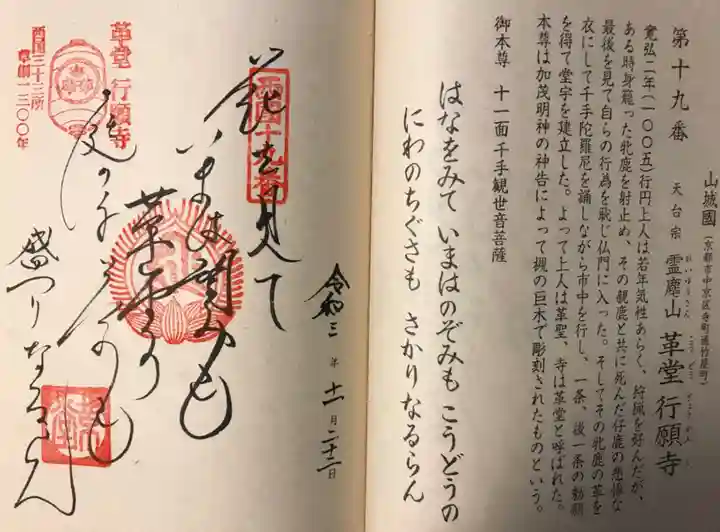 山城國（京都市中京区寺町通竹屋町）
第十九番 天台宗 霊麀山 革堂 行願寺
れいゆうざん こうどう ぎょうがんじ
寛弘二年（一〇〇五）行円上人は若年気性あらく、狩猟を好んだが、
ある時身籠った牝鹿を射止め、その親鹿と共に死んだ仔鹿の悲惨な
最後を見て自らの行為を恥じ仏門に入った。そしてその牝鹿の革を
衣にして千手陀羅尼を誦しながら市中を行し、一条、後一条の勅願
を得て堂宇を建立した。よって上人は革聖、寺は革堂と呼ばれた。
本尊は加茂明神の神告によって槻の巨木で彫刻されたものという。
御本尊 十一面千手観世音菩薩
はなをみて いまはのぞみも こうどうの
にわのちぐさも さかりなるらん
令和三年十一月二十二日
西国十九番
花を見て
いまは望も
革堂の
庭の千草も
盛りなるらん
革堂 行願寺
西国三十三所
草創一三〇〇年